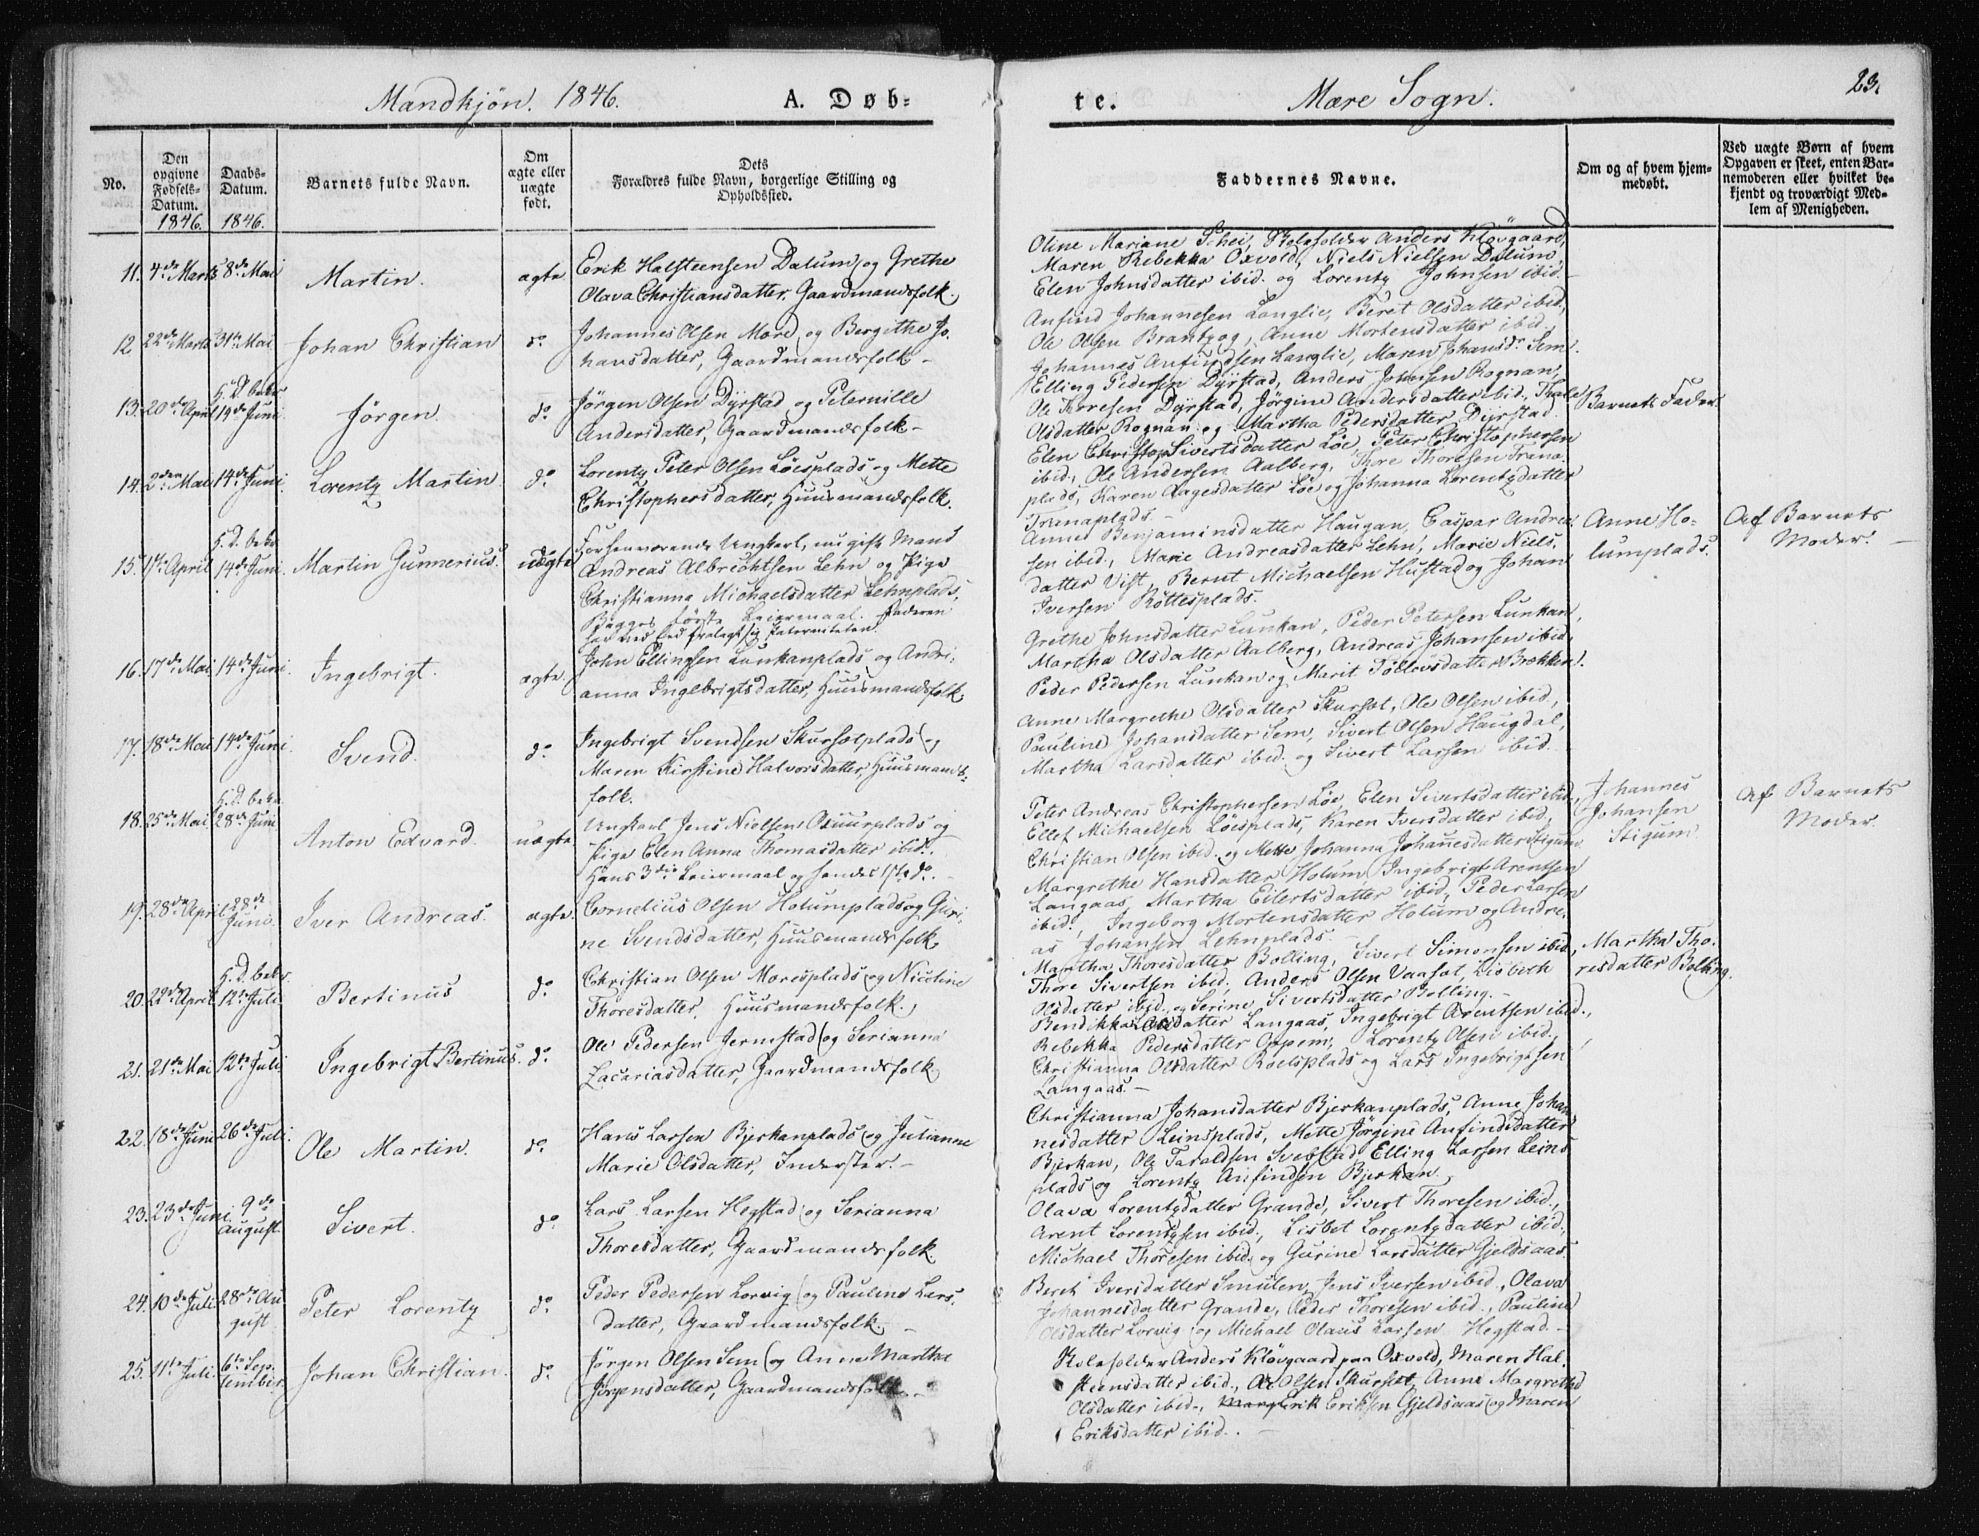 Mandkjön. 1846.
A. Døb-
te.
Mære Sogn.
23.
No.
Den opgivne Fødsels-Datum. 1846.
Daabs-Datum. 1846.
Barnets fulde Navn.
Om ægte eller uægte født.
Dets Forældres fulde Navn, borgerlige Stilling og Opholdssted.
Faddernes Navne.
Om og af hvem hjemmedøbt.
Ved uægte Børn af hvem Opgaven er skeet, enten Barnemoderen eller hvilket bekjendt og troværdigt Medlem af Menigheden.
11. 4de Marts 8de Mai Martin. ægte
Erik Halsteensen Dalum og Grethe
Olava Christiansdatter, Gaardmandsfolk.
Oline Mariane Schei, Skoleholder Anders Klövgaard,
Maren Rebekka Oxvold, Niels Nielsen Dalum,
Elen Johnsdatter ibid. og Lorentz Johnsen ibid.
12. 22de Marts 31te Mai Johan Christian do
Johannes Olsen Mære og Bergithe Jo-
hansdatter, Gaardmandsfolk –
Anfind Johannesen Langlie, Beret Olsdatter ibid,
Ole Olsen Brandtzog, Anne Mortensdatter ibid,
Johannes Anfindsen Langlie, Maren Johansdr Sem.
13. 20de April h. D. bekr. 14de Juni Jörgen. do
Jörgen Olsen Dyrstad og Peternille
Andersdatter, Gaardmandsfolk –
Elling Pedersen Dyrstad, Anders Johnsen Rognan,
Ole Toresen Dyrstad, Jörgine Andersdatter ibid, Thale
Olsdatter Rognan og Martha Pedersdatter Dyrstad.
Barnets Fader.
14. 2den Mai 14de Juni. Lorentz Martin do
Lorentz Peter Olsen Löesplads og Mette
Christophersdatter, Huusmandsfolk.
Elen Sivertsdatter Löe, Peter Christophersen
ibid, Ole Andersen Aalberg, Thore Thoresen Trana-
plads, Karen Aagesdatter Löe og Johanna Lorentzdatter
Tranaplads –
15. 17de April h. D. bekr. 14de Juni. Martin Gunnerius. uægte
Forhenværende Ungkarl, nu gift Mand
Andreas Albrichtsen Lehn og Pige
Christianna Michaelsdatter Lehnplads,
Begges förste Leiermaal. Faderen
har ved Ed fralagt sig Paterniteten.
Anne Benjaminsdatter Haugan, Caspar Andrea-
sen ibid., Marie Andreasdatter Lehn, Marie Niels-
datter Vist, Bernt Michaelsen Hustad og Johan
Iversen Röttesplads.
Anne Ho-
lumplads.
Af Barnets
Moder. –
16. 17de Mai 14de Juni. Ingebrigt. ægte.
John Ellingsen Lunkanplads og Andri-
anna Ingebrigtsdatter, Huusmandsfolk
Grethe Johnsdatter Lunkan, Peder Petersen Lunkan,
Martha Olsdatter Aalberg, Andreas Johansen ibid,
Peder Pedersen Lunkan og Marit Tollevsdatter Brækken.
17. 18de Mai 14de Juni Svend. do
Ingebrigt Svendsen Skursætplads og
Maren Kirstine Halvorsdatter, Huusmands-
folk.
Anne Margrethe Olsdatter Skursæt, Ole Olsen ibid,
Pauline Johansdatter Sem, Sivert Olsen Haugdal,
Martha Larsdatter ibid. og Sivert Larsen ibid.
18. 25de Mai h. D. bekr. 28de Juni Anton Edvard. uægte
Ungkarl Jens Nielsen plads og
Pige Elen Anna Thomasdatter ibid.
Hans 3die Leiermaal og hendes 1ste do. –
Peter Andreas Christophersen Löe, Elen Sivertsdatter ibid.,
Ellef Michaelsen Löesplads, Karen Iversdatter ibid,
Christian Olsen ibid. og Mette Johanna Johannesdatter Stigum.
Johannes
Johansen
Stigum.
Af Barnets
Moder.
19. 28de April 28de Juni. Iver Andreas. ægte.
Cornelius Olsen Holumplads og Guri-
ne Svendsdatter, Huusmandsfolk
Margrethe Hansdatter Holum, Ingebrigt Arentsen
Langaas, Martha Eilertsdatter ibid, Peder Larsen
ibid., Ingeborg Mortensdatter Holum og Andre-
as Johansen Lehnplads.
20. 22de April h. D. bekr. 12te Juli Bertinus do
Christian Olsen Mæresplads og Nicoline
Thoresdatter, Huusmandsfolk.
Martha Thoresdatter Bolling, Sivert Simonsen ibid,
Thore Sivertsen ibid, Anders Olsen Vaasæt, Lisbeth
Olsdatter ibid. og Serine Sivertsdatter Bolling. –
Martha Tho-
resdatter Bolling.
21. 21de Mai 12te Juli. Ingebrigt Bertinus. do
Ole Pedersen Jernstad og Serianna
Zacariasdatter, Gaardmandsfolk
Bendikka datter Langaas, Ingebrigt Arentsen ibid.,
Rebekka Pedersdatter Oppem, Lorentz Olsen ibid.,
Christianna Olsdatter Roelsplads og Lars Ingebrigtsen
Langaas. –
22. 18de Juni 26de Juli. Ole Martin. do
Hans Larsen Bjerkanplads og Julianne
Marie Olsdatter, Inderster. –
Christianna Johansdatter Bjerkanplads, Anne Johan-
nesdatter Leinsplads, Mette Jörgine Anfindsdatter
Bjerkan, Ole Taraldsen Svebstad, Elling Larsen Leins-
plads og Lorentz Anfindsen Bjerkan
23. 23de Juni 9de August. Sivert. do
Lars Larsen Hegstad og Serianna
Thoresdatter, Gaardmandsfolk.
Olava Lorentzdatter Grande, Sivert Thoresen ibid.,
Arent Lorentzsen ibid, Lisbet Lorentzdatter ibid,
Michael Thoresen ibid. og Gurine Larsdatter Gjeldsaas
24. 10de Juli 28de August Peter Lorentz do
Peder Pedersen Lorvig og Pauline Lars-
datter, Gaardmandsfolk –
Beret Iversdatter Smulen, Jens Iversen ibid., Olava
Johannesdatter Grande, Peder Thoresen ibid., Pauline
Olsdatter Lorvig og Michael Olaus Larsen Hegstad. –
25. 11te Juli. 6te September Johan Christian. do
Jörgen Olsen Sem og Anne Martha
Jörgensdatter, Gaardmandsfolk –
Skoleholder Anders Klövgaard paa Oxvold, Maren Hal-
steensdatter ibid., Ole Olsen Skursæt, Anne Margrethe
Olsdatter ibid., Erik Eriksen Gjeldsaas og Maren
Eriksdatter ibid. –